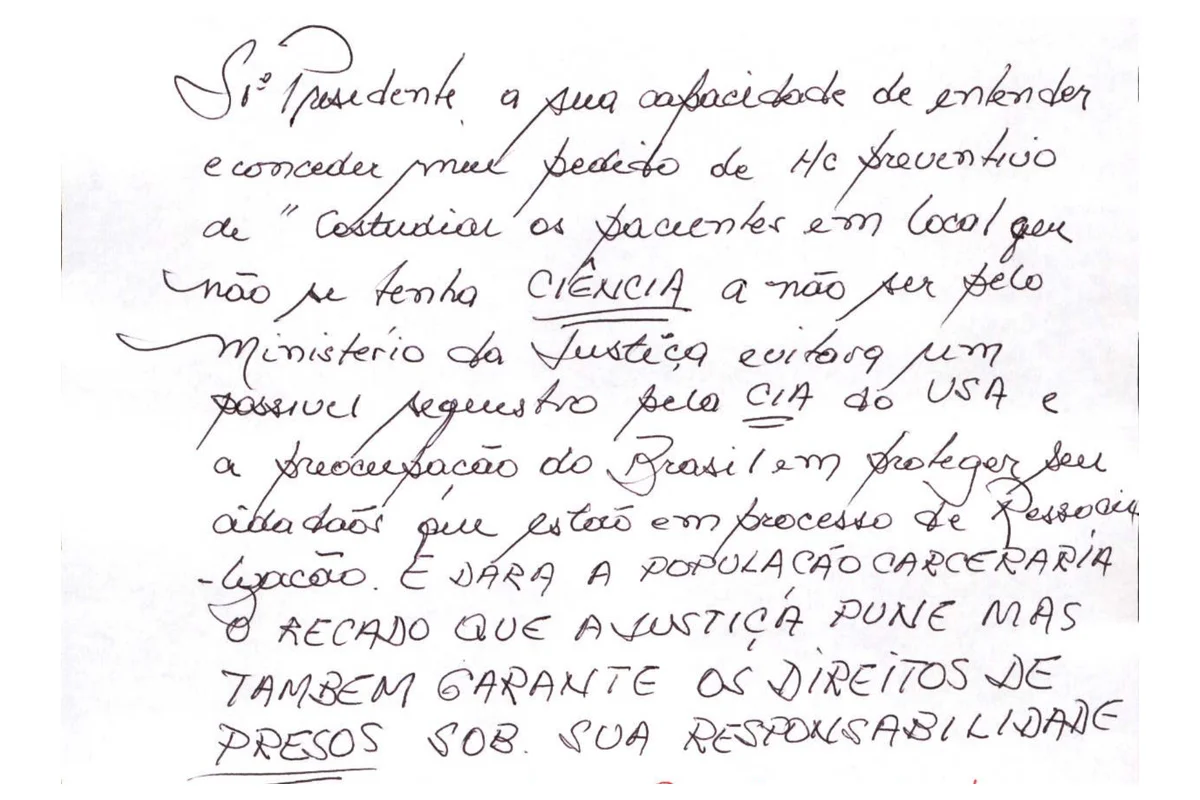 Srº Presidente a sua capacidade de entender
e conceder meu pedido de H/c preventivo
de " Costudiar os pacientes em local que
não se tenha CIÊNCIA a não ser pelo
Ministério da Justiça evitara um
possivel sequestro pela CIA do USA e
a preocupação do Brasil em proteger seu
cidadaõs que estaõ em processo de Ressocia
-lização. E DARA A POPULAÇÃO CARCERARIA
O RECADO QUE A JUSTIÇA PUNE MAS
TAMBEM GARANTE OS DIREITOS DE
PRESOS SOB. SUA RESPONSABILIDADE